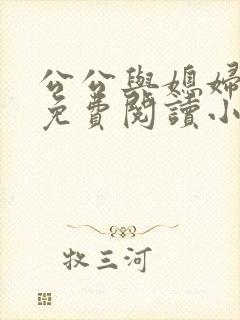 公公與媳婦
免費閱讀小
牧三河